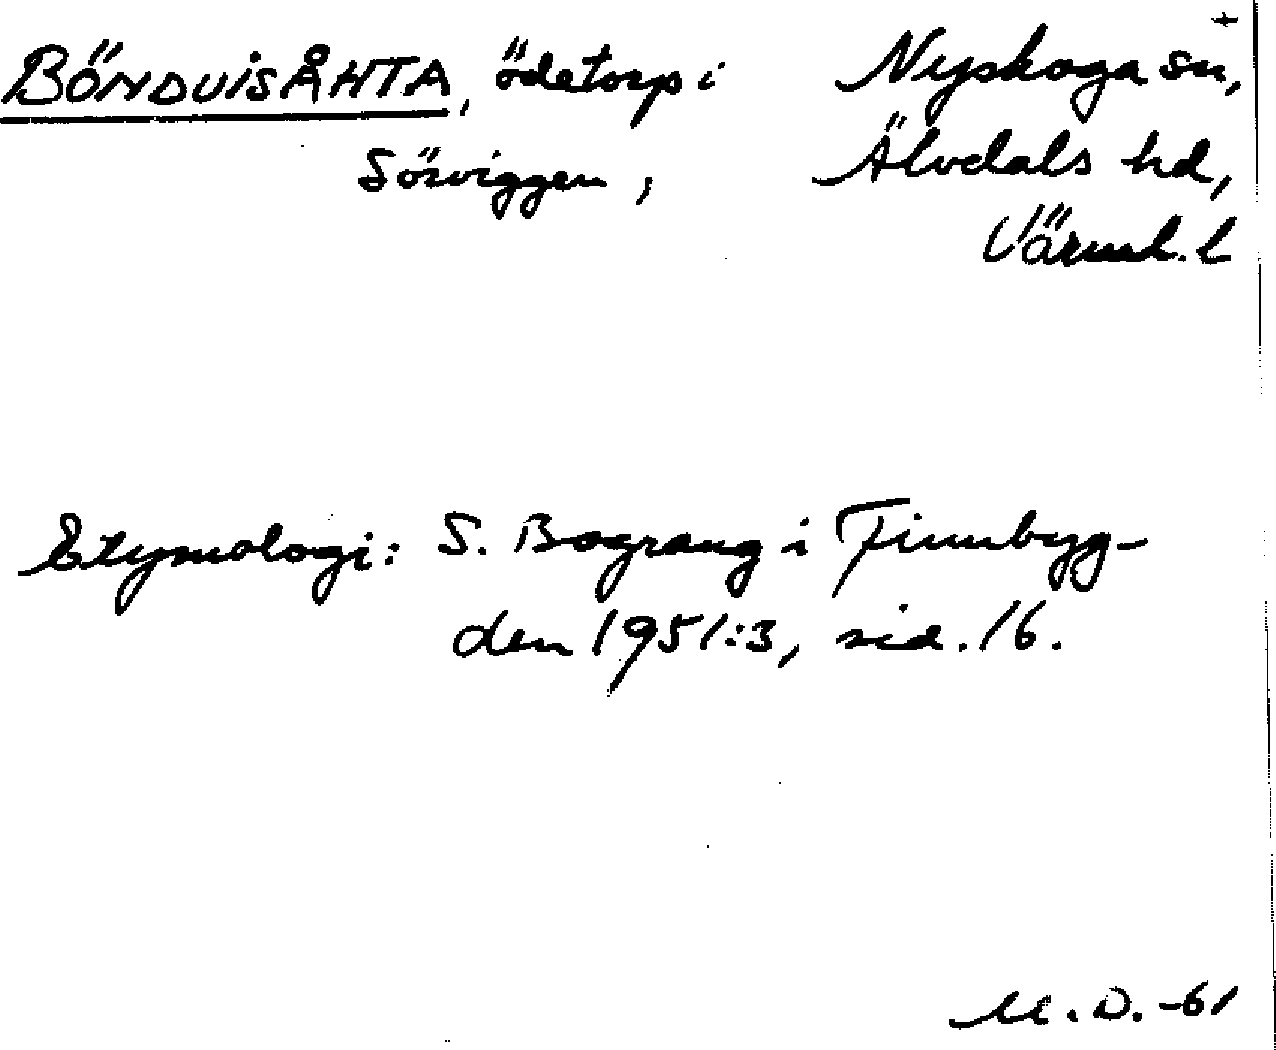 +
BÖNDUISÅHTA, ödetorp i Nyskoga sn,
Sörviggen, Älvdals hd,
Värml. l
Etymologi: S. Bograng i Finnbyg-
den 1951:3, sid. 16.
M. D. -61